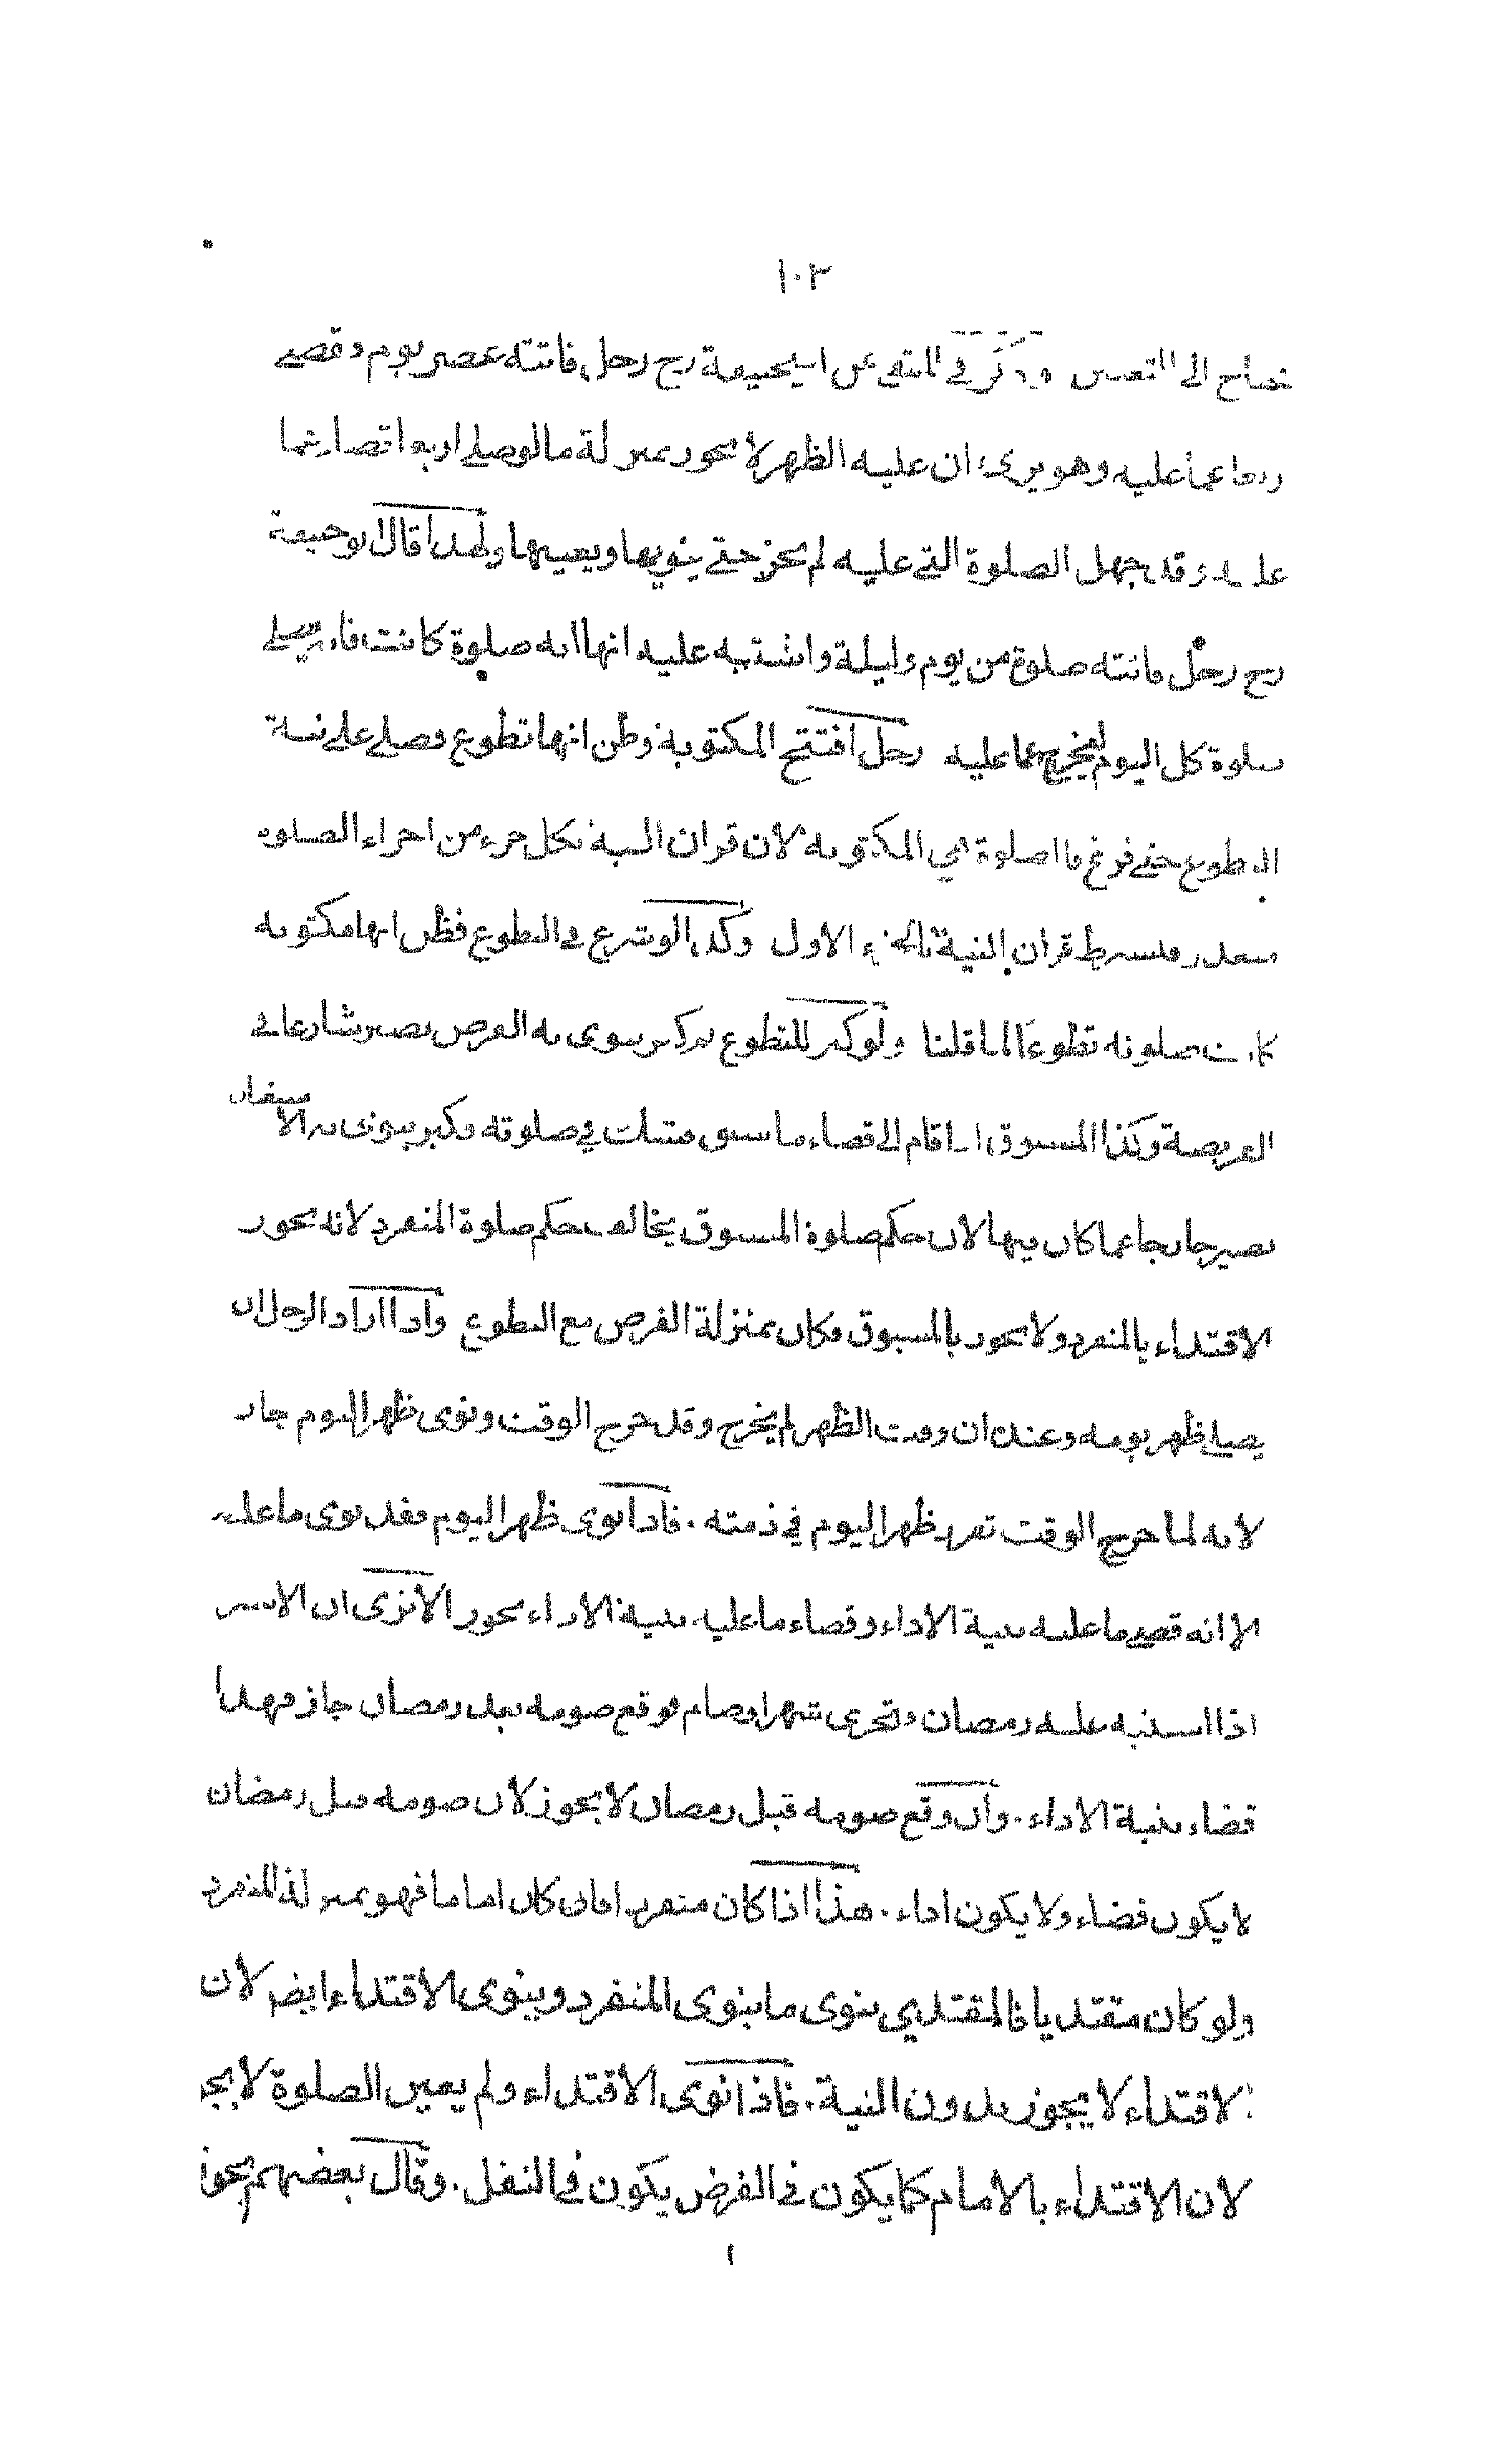 ١٠٣
يحتاج الى التعيين وذكر في المنتقى عن ابيحنيفة رح رجل فاتته عصر يوم وقضى
عما عليه وهو يرى ان عليه الظهر لا يجوز بمنزلة ما لو صلى اربعا قضاء عما
عليه وقد جهل الصلوة التي عليه لم يجز حتى ينويها ويعينها ولهذا قال ابو حنيفة
رح رجل فاتته صلوة من يوم وليلة واشتبه عليه انها اية صلوة كانت فانه يصلي
صلوة كل اليوم ليخرج عما عليه رجل افتتح المكتوبة وظن انها تطوع فصلى على نية
التطوع حتى فرغ فالصلوة هي المكتوبة لان قران النية بكل جزء من اجزاء الصلوة
متعذر فيشرط قران النية بالجزء الاول وكذا لو شرع في التطوع فظن انها مكتوبة
كانت صلوته تطوعا لما قلنا ولو كبر للتطوع ثم كبر ينوى به الفرض يصير شارعا في
الفريضة وكذا المسبوق اذا قام الى قضاء ما سبق فشك في صلوته وكبر ينوى به الاستقبال
يصير خارجا عما كان فيها لان حكم صلوة المسبوق يخالف حكم صلوة المنفرد لانه يجوز
الاقتداء بالمنفرد ولا يجوز بالمسبوق فكان بمنزلة الفرض مع التطوع واذا اراد الرجل ان
يصلى ظهر يومه وعنده ان وقت الظهر لم يخرج وقد خرج الوقت ونوى ظهر اليوم جاز
لانه لما خرج الوقت تقرر ظهر اليوم في ذمته . فاذا نوى ظهر اليوم فقد نوى ما عليه
الا انه قصد ما عليه بنية الاداء وقضاء ما عليه بنية الاداء يجوز الا ترى ان الاسير
اذا اشتبه عليه رمضان وتحرى شهرا وصام فوقع صومه بعد رمضان جاز فهذا
قضاء بنية الاداء . وان وقع صومه قبل رمضان لا يجوز لان صومه قبل رمضان
لا يكون قضاء ولا يكون اداء . هذا اذا كان منفردا فان كان اماما فهو بمنزلة المنفرد
ولو كان مقتديا فالمقتدي ينوى ما ينوى المنفرد وينوى الاقتداء ايضا لان
الاقتداء لا يجوز بدون النية . فاذا نوى الاقتداء ولم يعين الصلوة لا يجو
لان الاقتداء بالامام كما يكون في الفرض يكون في النفل . وقال بعضهم يجوز